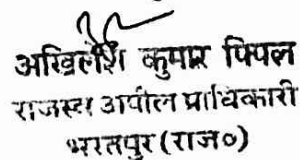 अखिलेश कुमार पिपल
राजस्व अपील प्राधिकारी
भरतपुर (राज०)